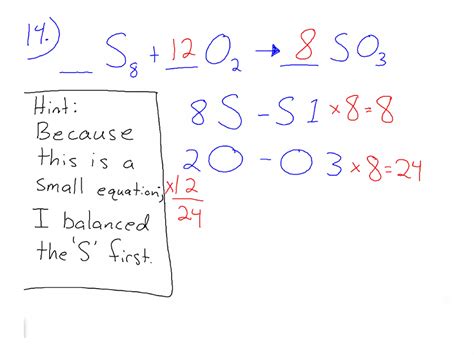 14.) __ S₈ + 12 O₂ → 8 SO₃
8 S - S 1 ×8=8
2 O - O 3 ×8=24
×12
24
Hint:
Because
this is a
small equation,
I balanced
the 'S' first.